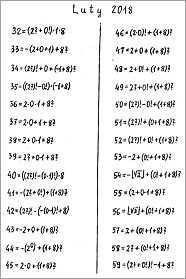 Luty 2018
32=(2?+0!)·1·8
33=-(2+0+1)+8?
34=(2?)!+0+(-1+8)?
35=((2?)!-0!)·(-1+8)
36=2·0·1+8?
37=2·0+1+8?
38=2+0·1+8?
39=2?+0·1+8?
40=((2?)!-(0·1)!)·8
41=-(2?+0!)+(1+8)?
42=(2?)!·(-(0·1)!+8)
43=-2+0+(1+8)?
44=-(2⁰)+(1+8)?
45=2·0+(1+8)?
46=(2·0)!+(1+8)?
47=2+0+(1+8)?
48=2+0!+(1+8)?
49=2?+0!+(1+8)?
50=(2?)!-0!+(1+8)?
51=(2?)!+0+(1+8)?
52=(2?)!+0!+(1+8)?
53=-2+(0!+1+8)?
54=-⌊√2⌋+(0!+1+8)?
55=(2+0·1+8)?
56=⌊√2⌋+(0!+1+8)?
57=2+(0!+1+8)?
58=2?+(0!+1+8)?
59=(2?+0!)!-1+8?